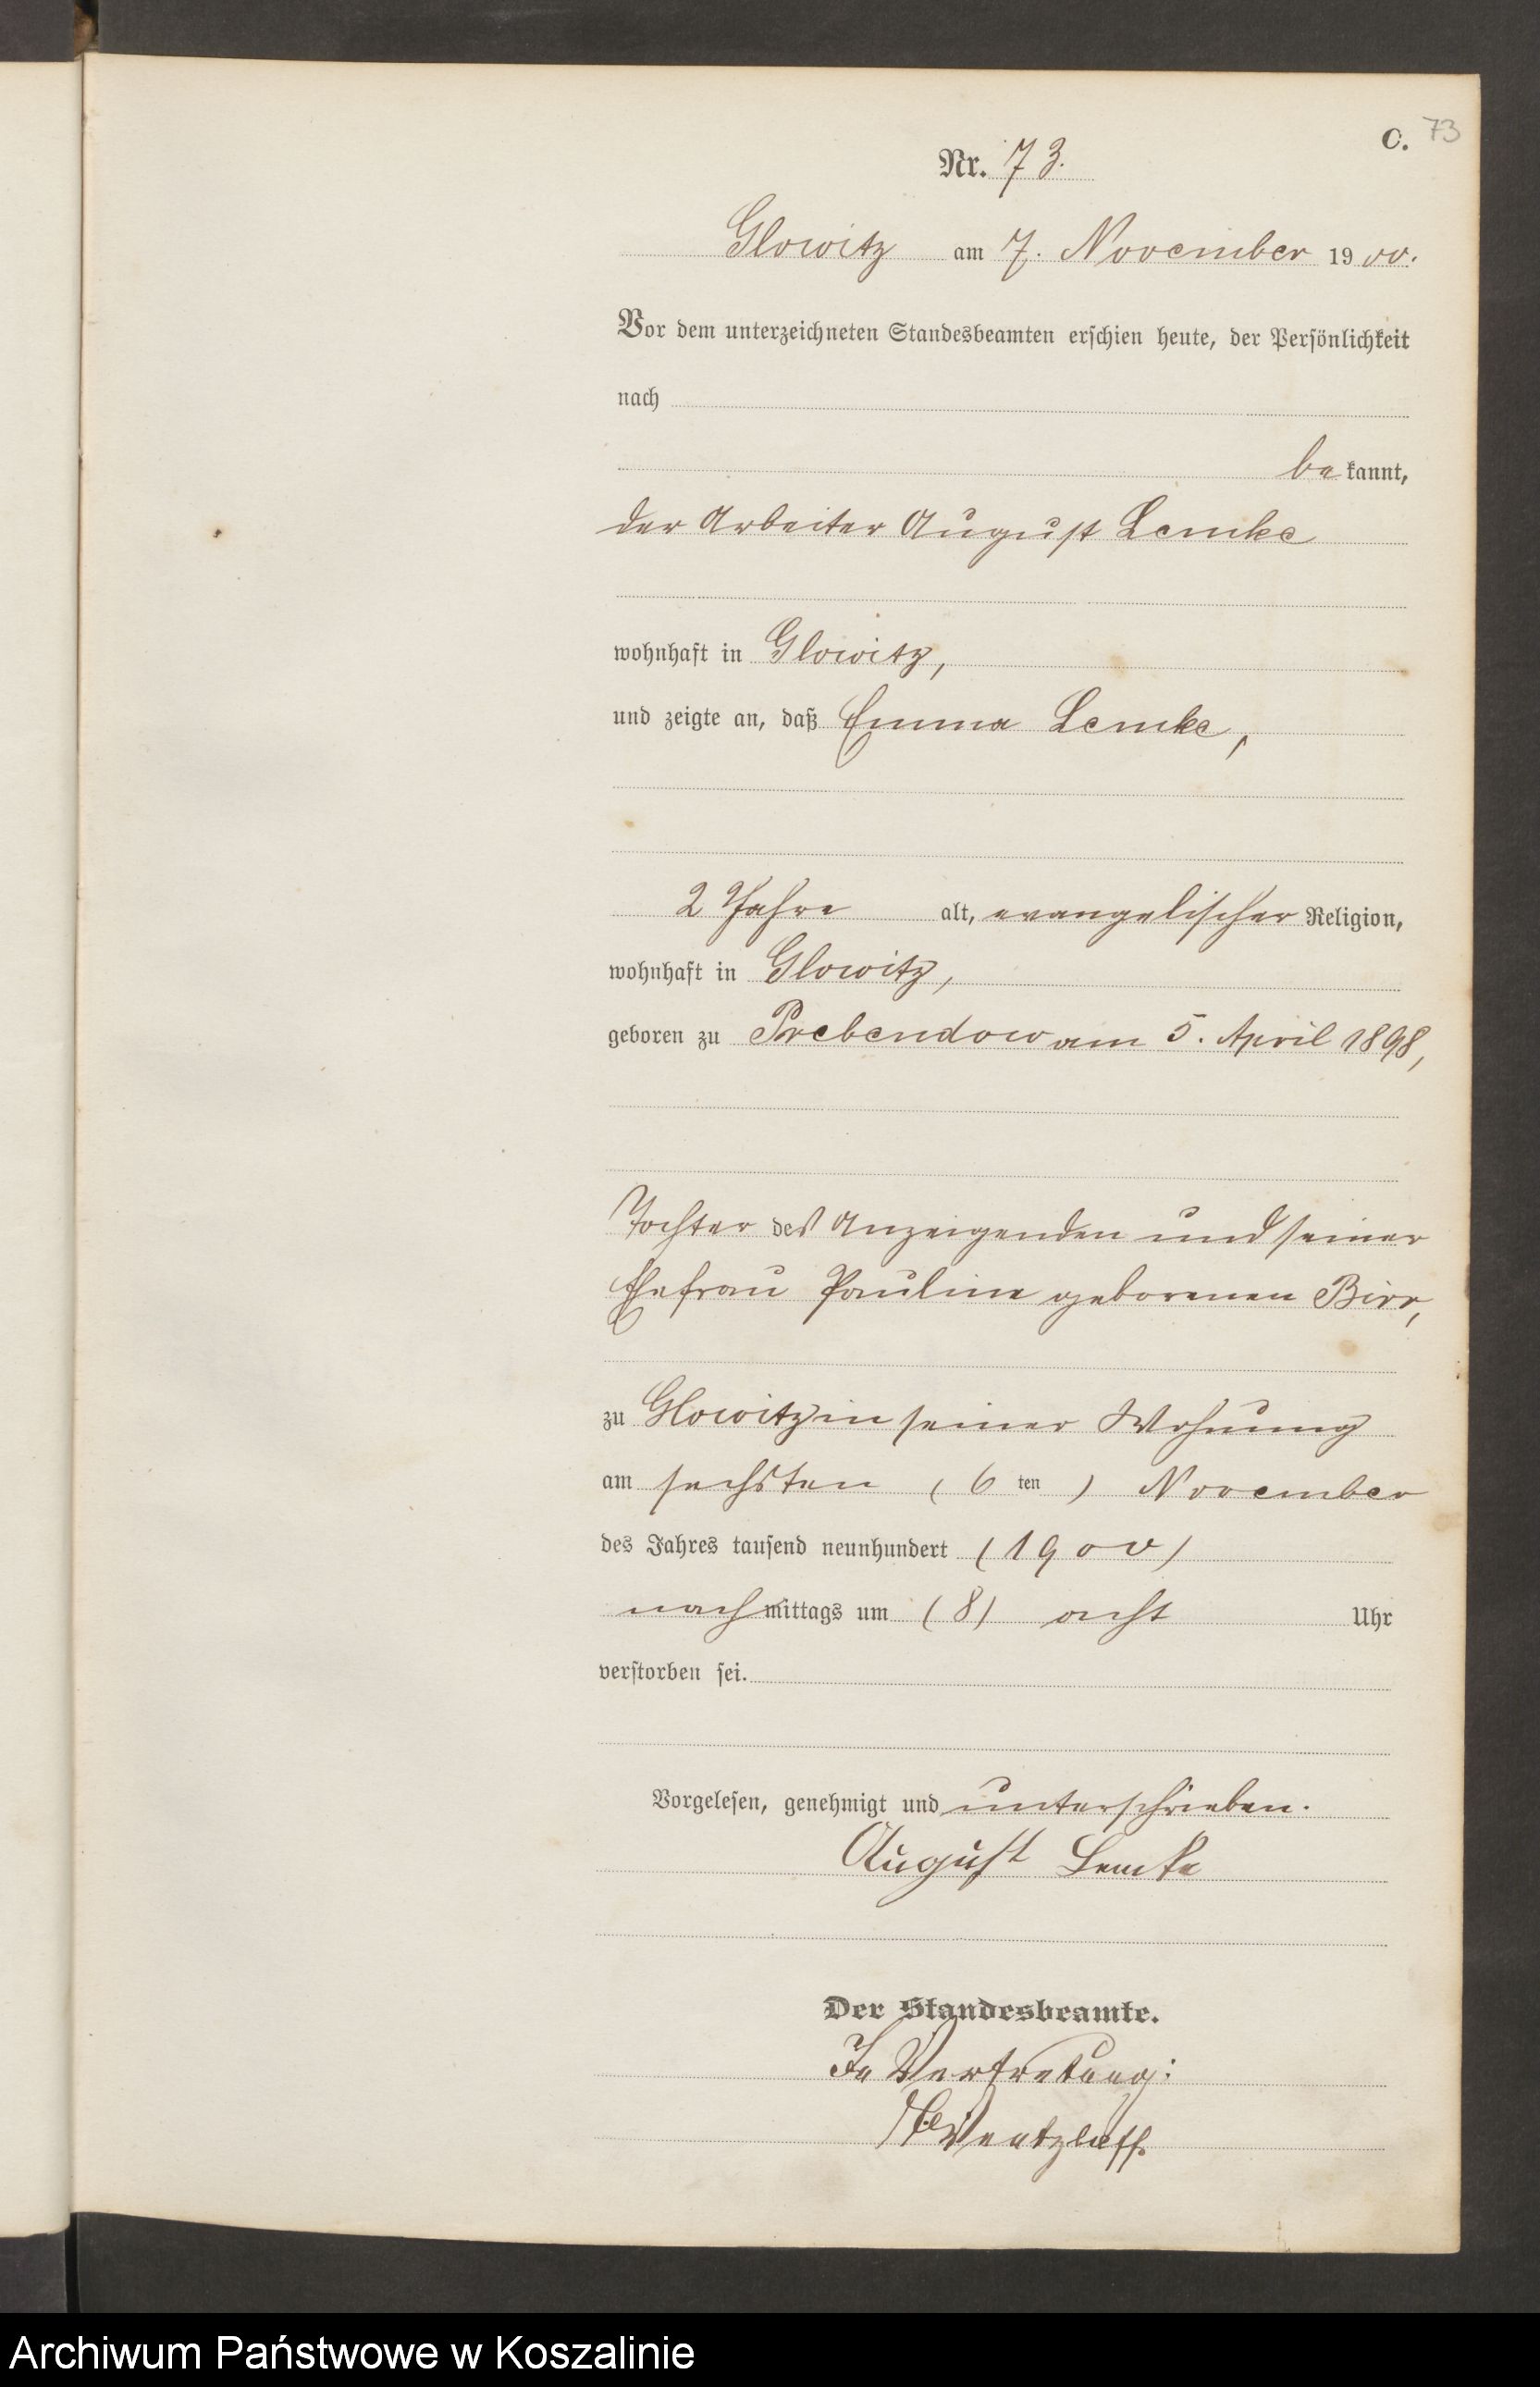 C. 73
Nr. 73.
Glowitz am 7. November 1900.
Vor dem unterzeichneten Standesbeamten erschien heute, der Persönlichkeit
nach
bekannt,
der Arbeiter August Lemke
wohnhaft in Glowitz,
und zeigte an, daß Emma Lemke,
2 Jahre alt, evangelischer Religion,
wohnhaft in Glowitz,
geboren zu Prebendow am 5. April 1898,
Tochter des Anzeigenden und seiner
Ehefrau Pauline geborenen Birr,
zu Glowitz in seiner Wohnung
am sechsten (6ten) November
des Jahres tausend neunhundert (1900)
nachmittags um (8) acht Uhr
verstorben sei.
Vorgelesen, genehmigt und unterschrieben.
August Lemke
Der Standesbeamte.
In Vertretung:
Wentzlaff.
Archiwum Państwowe w Koszalinie